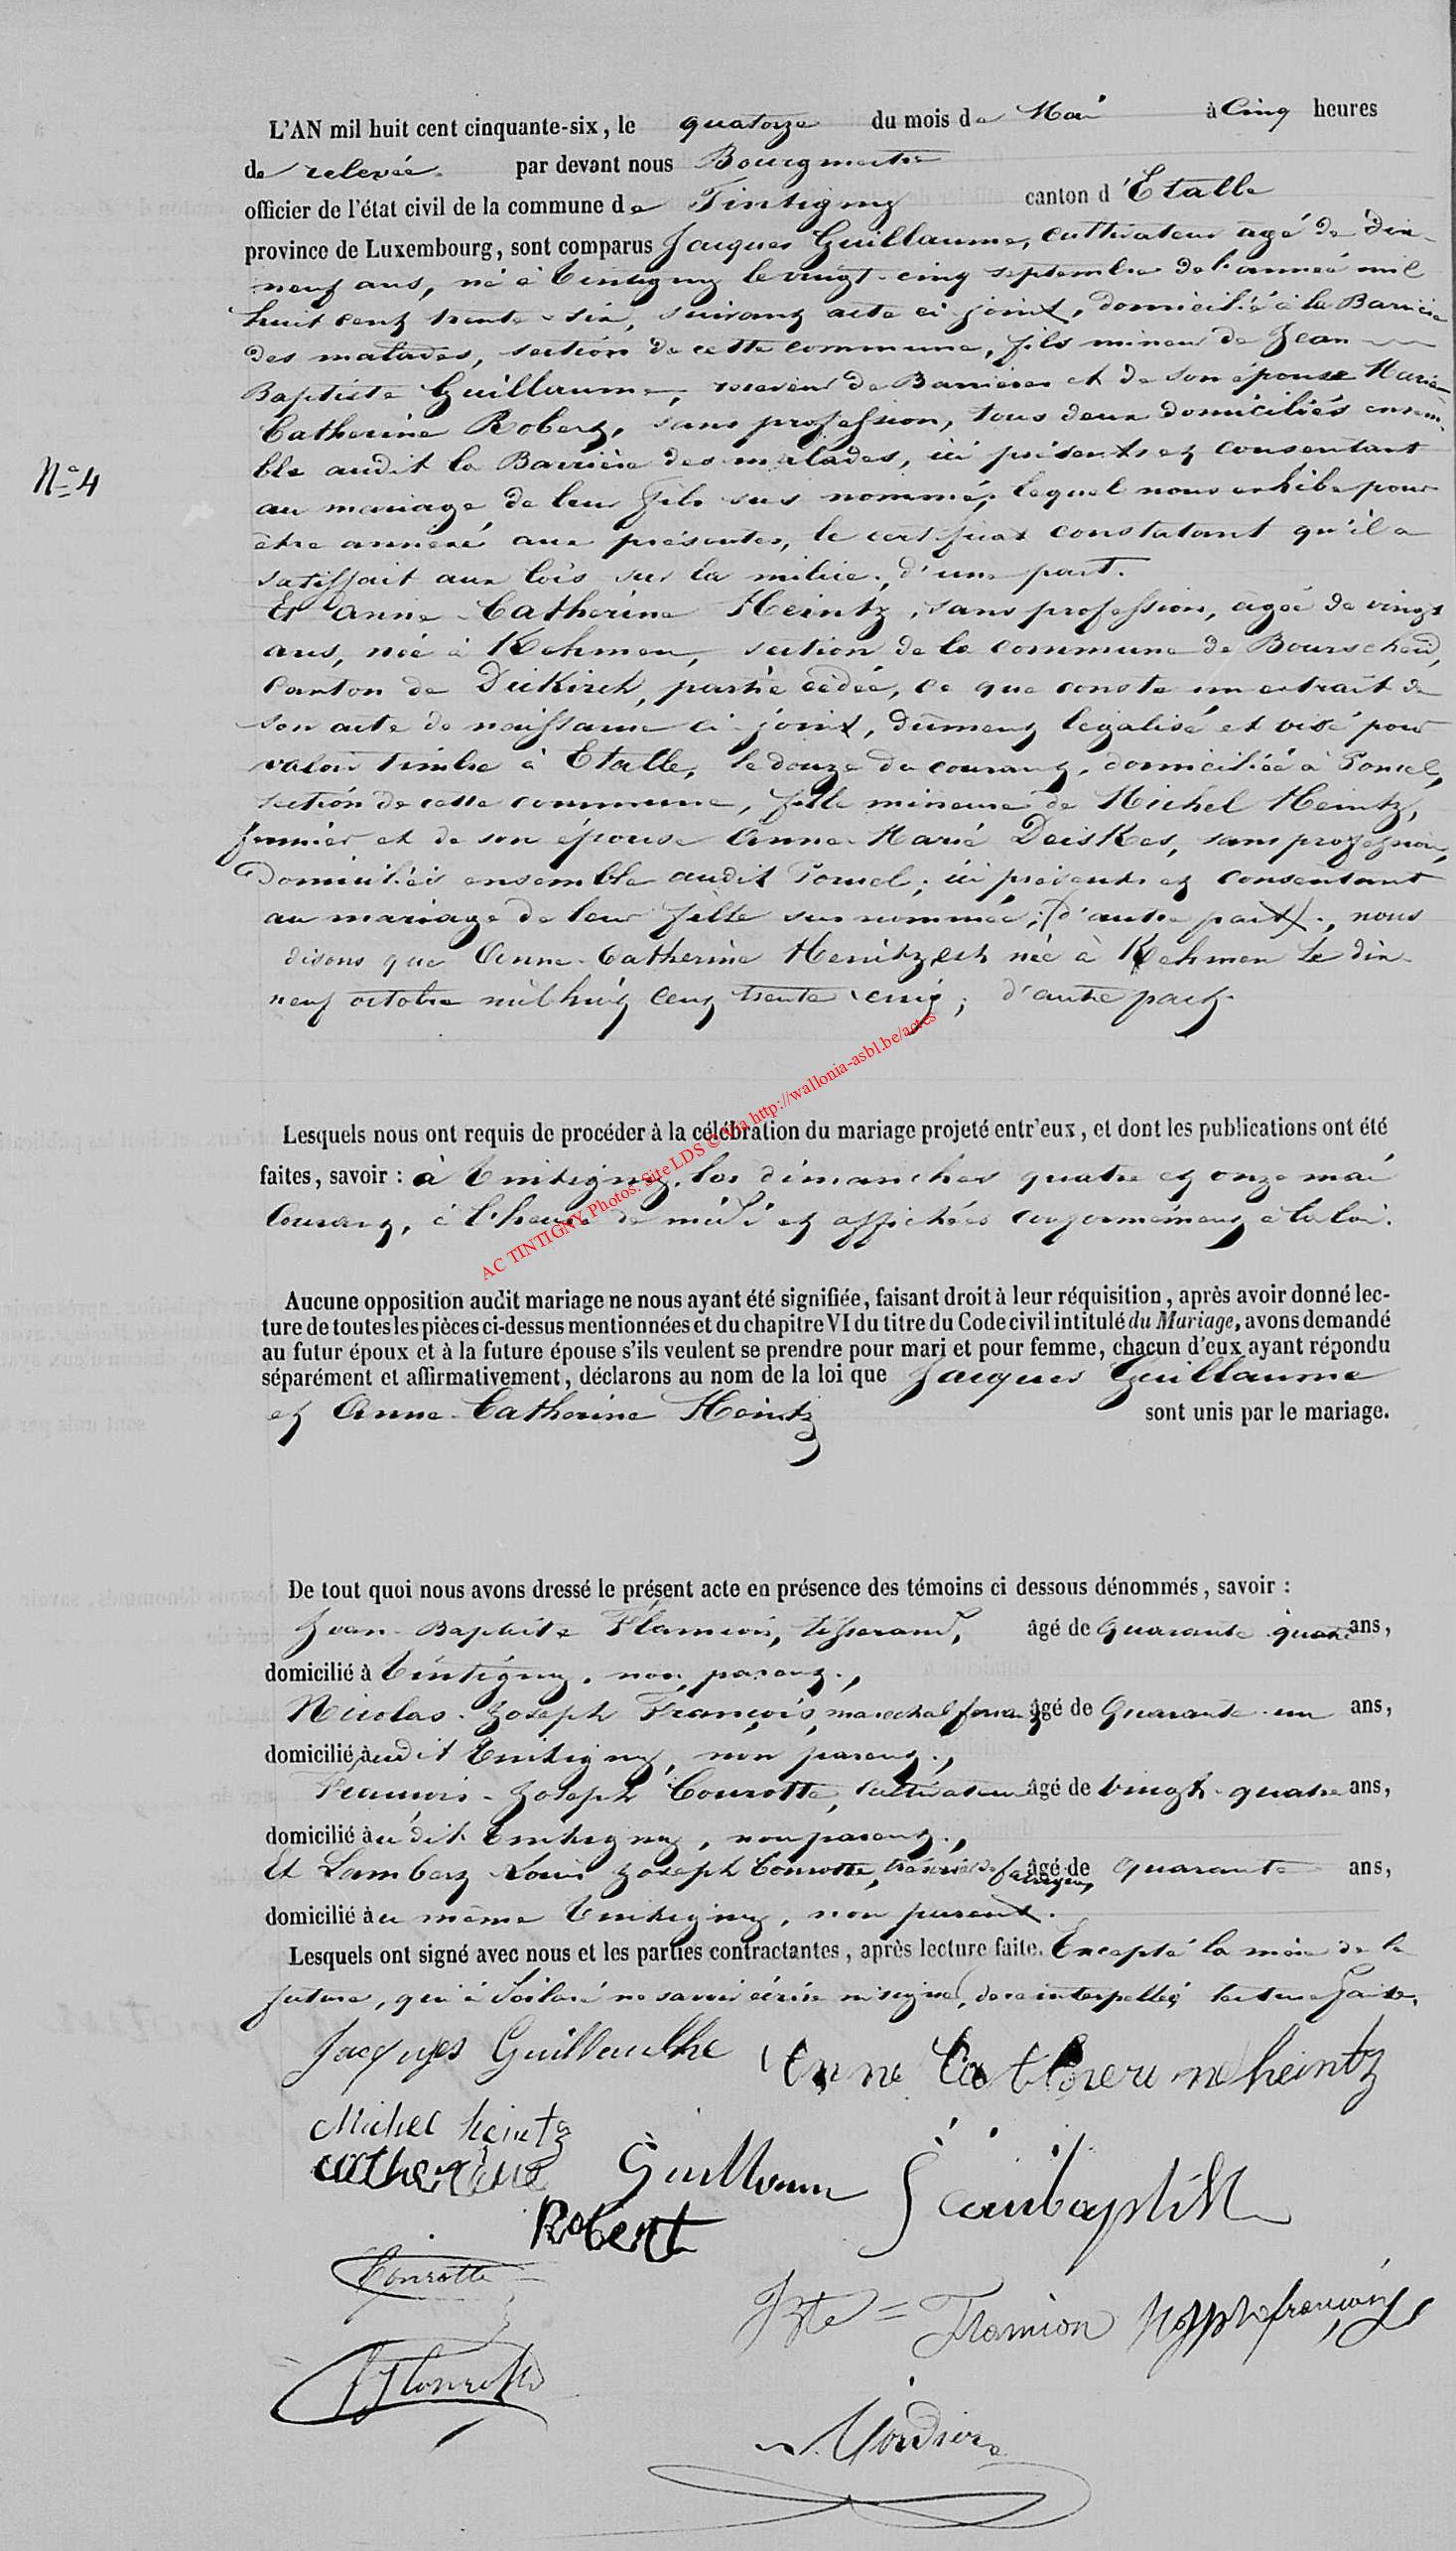 L'AN mil huit cent cinquante-six, le quatorze du mois de Mai à Cinq heures
de relevée. par devant nous Bourgmestre
officier de l'état civil de la commune de Tintigny canton d'Etalle
province de Luxembourg, sont comparus Jacques Guillaume, cultivateur agé de dix-
neuf ans, né à Tintigny le vingt-cinq septembre de l'année mil
huit cent trente-six, suivant acte ci-joint, domicilié à la Barrière
des malades, section de cette commune, fils mineur de Jean
Baptiste Guillaume, receveur de Barrières et de son épouse Marie-
Catherine Robert, sans profession, tous deux domiciliés ensem-
N° 4
ble audit la Barrière des malades, ici présents et consentant
au mariage de leur fils sus nommé, lequel nous exhibe pour
être annexé aux présentes, le certificat constatant qu'il a
satisfait aux lois sur la milice, d'une part.
Et Anne-Catherine Heintz, sans profession, agée de vingt
ans, née à Kehmen, section de la commune de Bourscheid,
Canton de Diekirch, partie cédée, ce que conste un extrait de
son acte de naissance ci-joint, dûment légalisé et visé pour
valoir timbre à Etalle, le douze du courant, domiciliée à Poncel,
section de cette commune, fille mineure de Michel Heintz,
fermier et de son épouse Anne-Marie Deiskes, sans profession,
Domiciliés ensemble audit Poncel, ici présents et consentant
au mariage de leur fille sus nommée; (d'autre part)., nous
disons que Anne-Catherine Heintz est née à Kehmen le dix-
neuf octobre mil huit cent trente cinq; d'autre part.
Lesquels nous ont requis de procéder à la célébration du mariage projeté entr'eux, et dont les publications ont été
faites, savoir : à Tintigny, les dimanches quatre et onze mai
Courant, à l'heure de midi et affichées conformément à la loi.
AC TINTIGNY Photos. Site LDS © via http://wallonia-asbl.be/actes
Aucune opposition audit mariage ne nous ayant été signifiée, faisant droit à leur réquisition, après avoir donné lec-
ture de toutes les pièces ci-dessus mentionnées et du chapitre VI du titre du Code civil intitulé du Mariage, avons demandé
au futur époux et à la future épouse s'ils veulent se prendre pour mari et pour femme, chacun d'eux ayant répondu
séparément et affirmativement, déclarons au nom de la loi que Jacques Guillaume
et Anne-Catherine Heintz sont unis par le mariage.
De tout quoi nous avons dressé le présent acte en présence des témoins ci dessous dénommés, savoir :
Jean-Baptiste Flamion, tisserand, âgé de Quarante quatre ans,
domicilié à Tintigny, non parent.,
Nicolas-Joseph François, maréchal ferrant, âgé de Quarante-un ans,
domicilié audit Tintigny, non parent.,
François-Joseph Conrotte, cultivateur âgé de vingt-quatre ans,
domicilié audit Tintigny, non parent.,
Et Lambert Louis Joseph Conrotte, âgé de quarante ans,
domicilié au même Tintigny, non parent.
Lesquels ont signé avec nous et les parties contractantes, après lecture faite. Excepté la mère de la
future, qui a déclaré ne savoir écrire ni signer, de ce interpellée, lecture faite.
Jacques Guillaulhe Anne Catherine heintz
Michel heintz
catherine Guillaum Jeanbaptist
Robert
Conrotte
JBte = Flamion NJph françois
FJConrotte